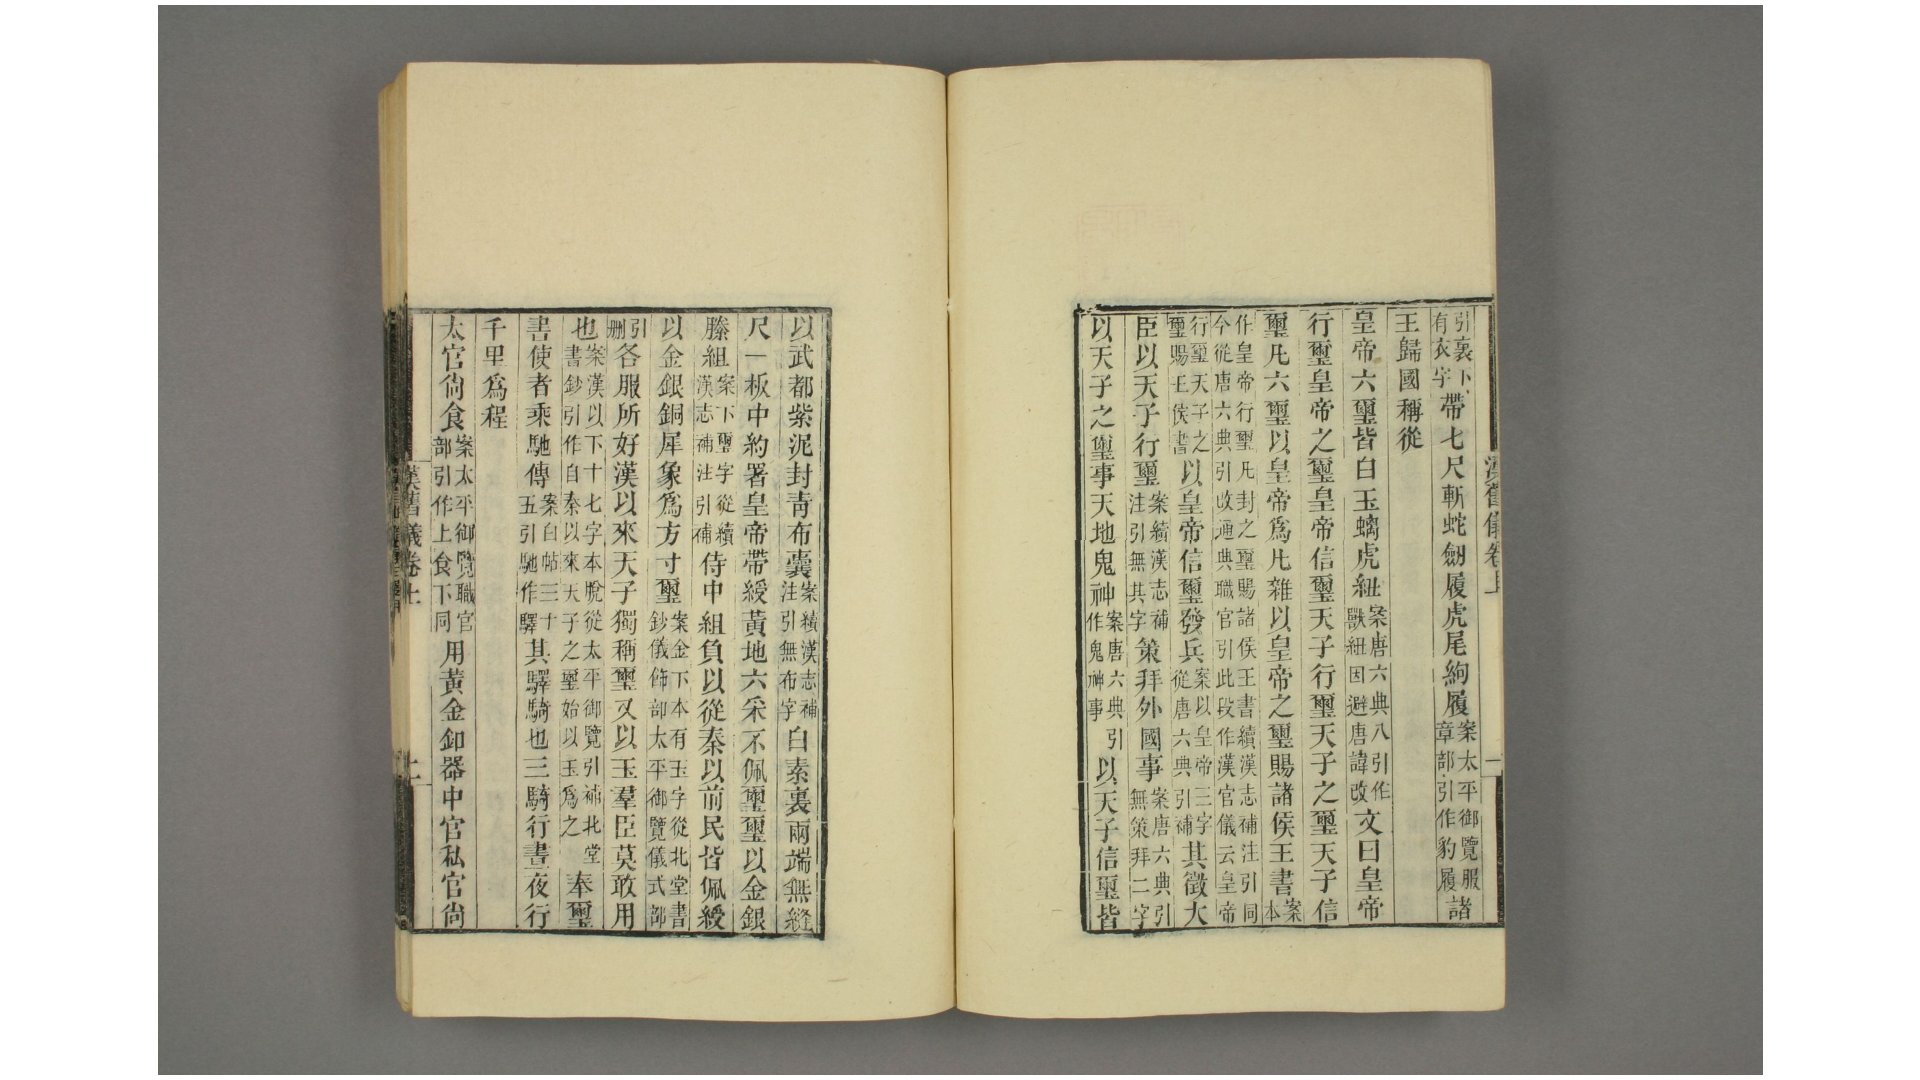 漢舊儀卷上
引裏下有衣字帶七尺斬蛇劒履虎尾絇履案太平御覽服章部引作豹履諸
王歸國稱從
皇帝六璽皆白玉螭虎紐案唐六典八引作獸紐因避唐諱改文曰皇帝
行璽皇帝之璽皇帝信璽天子行璽天子之璽天子信
璽凡六璽以皇帝爲凡雜以皇帝之璽賜諸侯王書案本
作皇帝行璽凡封之璽賜諸侯王書續漢志補注引同今從唐六典引改通典職官引此段作漢官儀云皇帝
行璽天子之璽賜王侯書以皇帝信璽發兵案以皇帝三字從唐六典引補其徵大
臣以天子行璽案續漢志補注引無其字策拜外國事案唐六典引無策拜二字
以天子之璽事天地鬼神案唐六典引作鬼神事以天子信璽皆
以武都紫泥封靑布囊案續漢志補注引無布字白素裏兩端無縫
尺一板中約署皇帝帶綬黃地六采不佩璽璽以金銀
縢組案下璽字從續漢志補注引補侍中組負以從秦以前民皆佩綬
以金銀銅犀象爲方寸璽案金下本有玉字從北堂書鈔儀飾部太平御覽儀式部
引刪各服所好漢以來天子獨稱璽又以玉羣臣莫敢用
也案漢以下十七字本脫從太平御覽引補北堂書鈔引作自秦以來天子之璽始以玉爲之奉璽
書使者乘馳傳案白帖三十五引馳作驛其驛騎也三騎行晝夜行
千里爲程
太官尙食案太平御覽職官部引作上食下同用黃金釦器中官私官尙
漢舊儀卷上